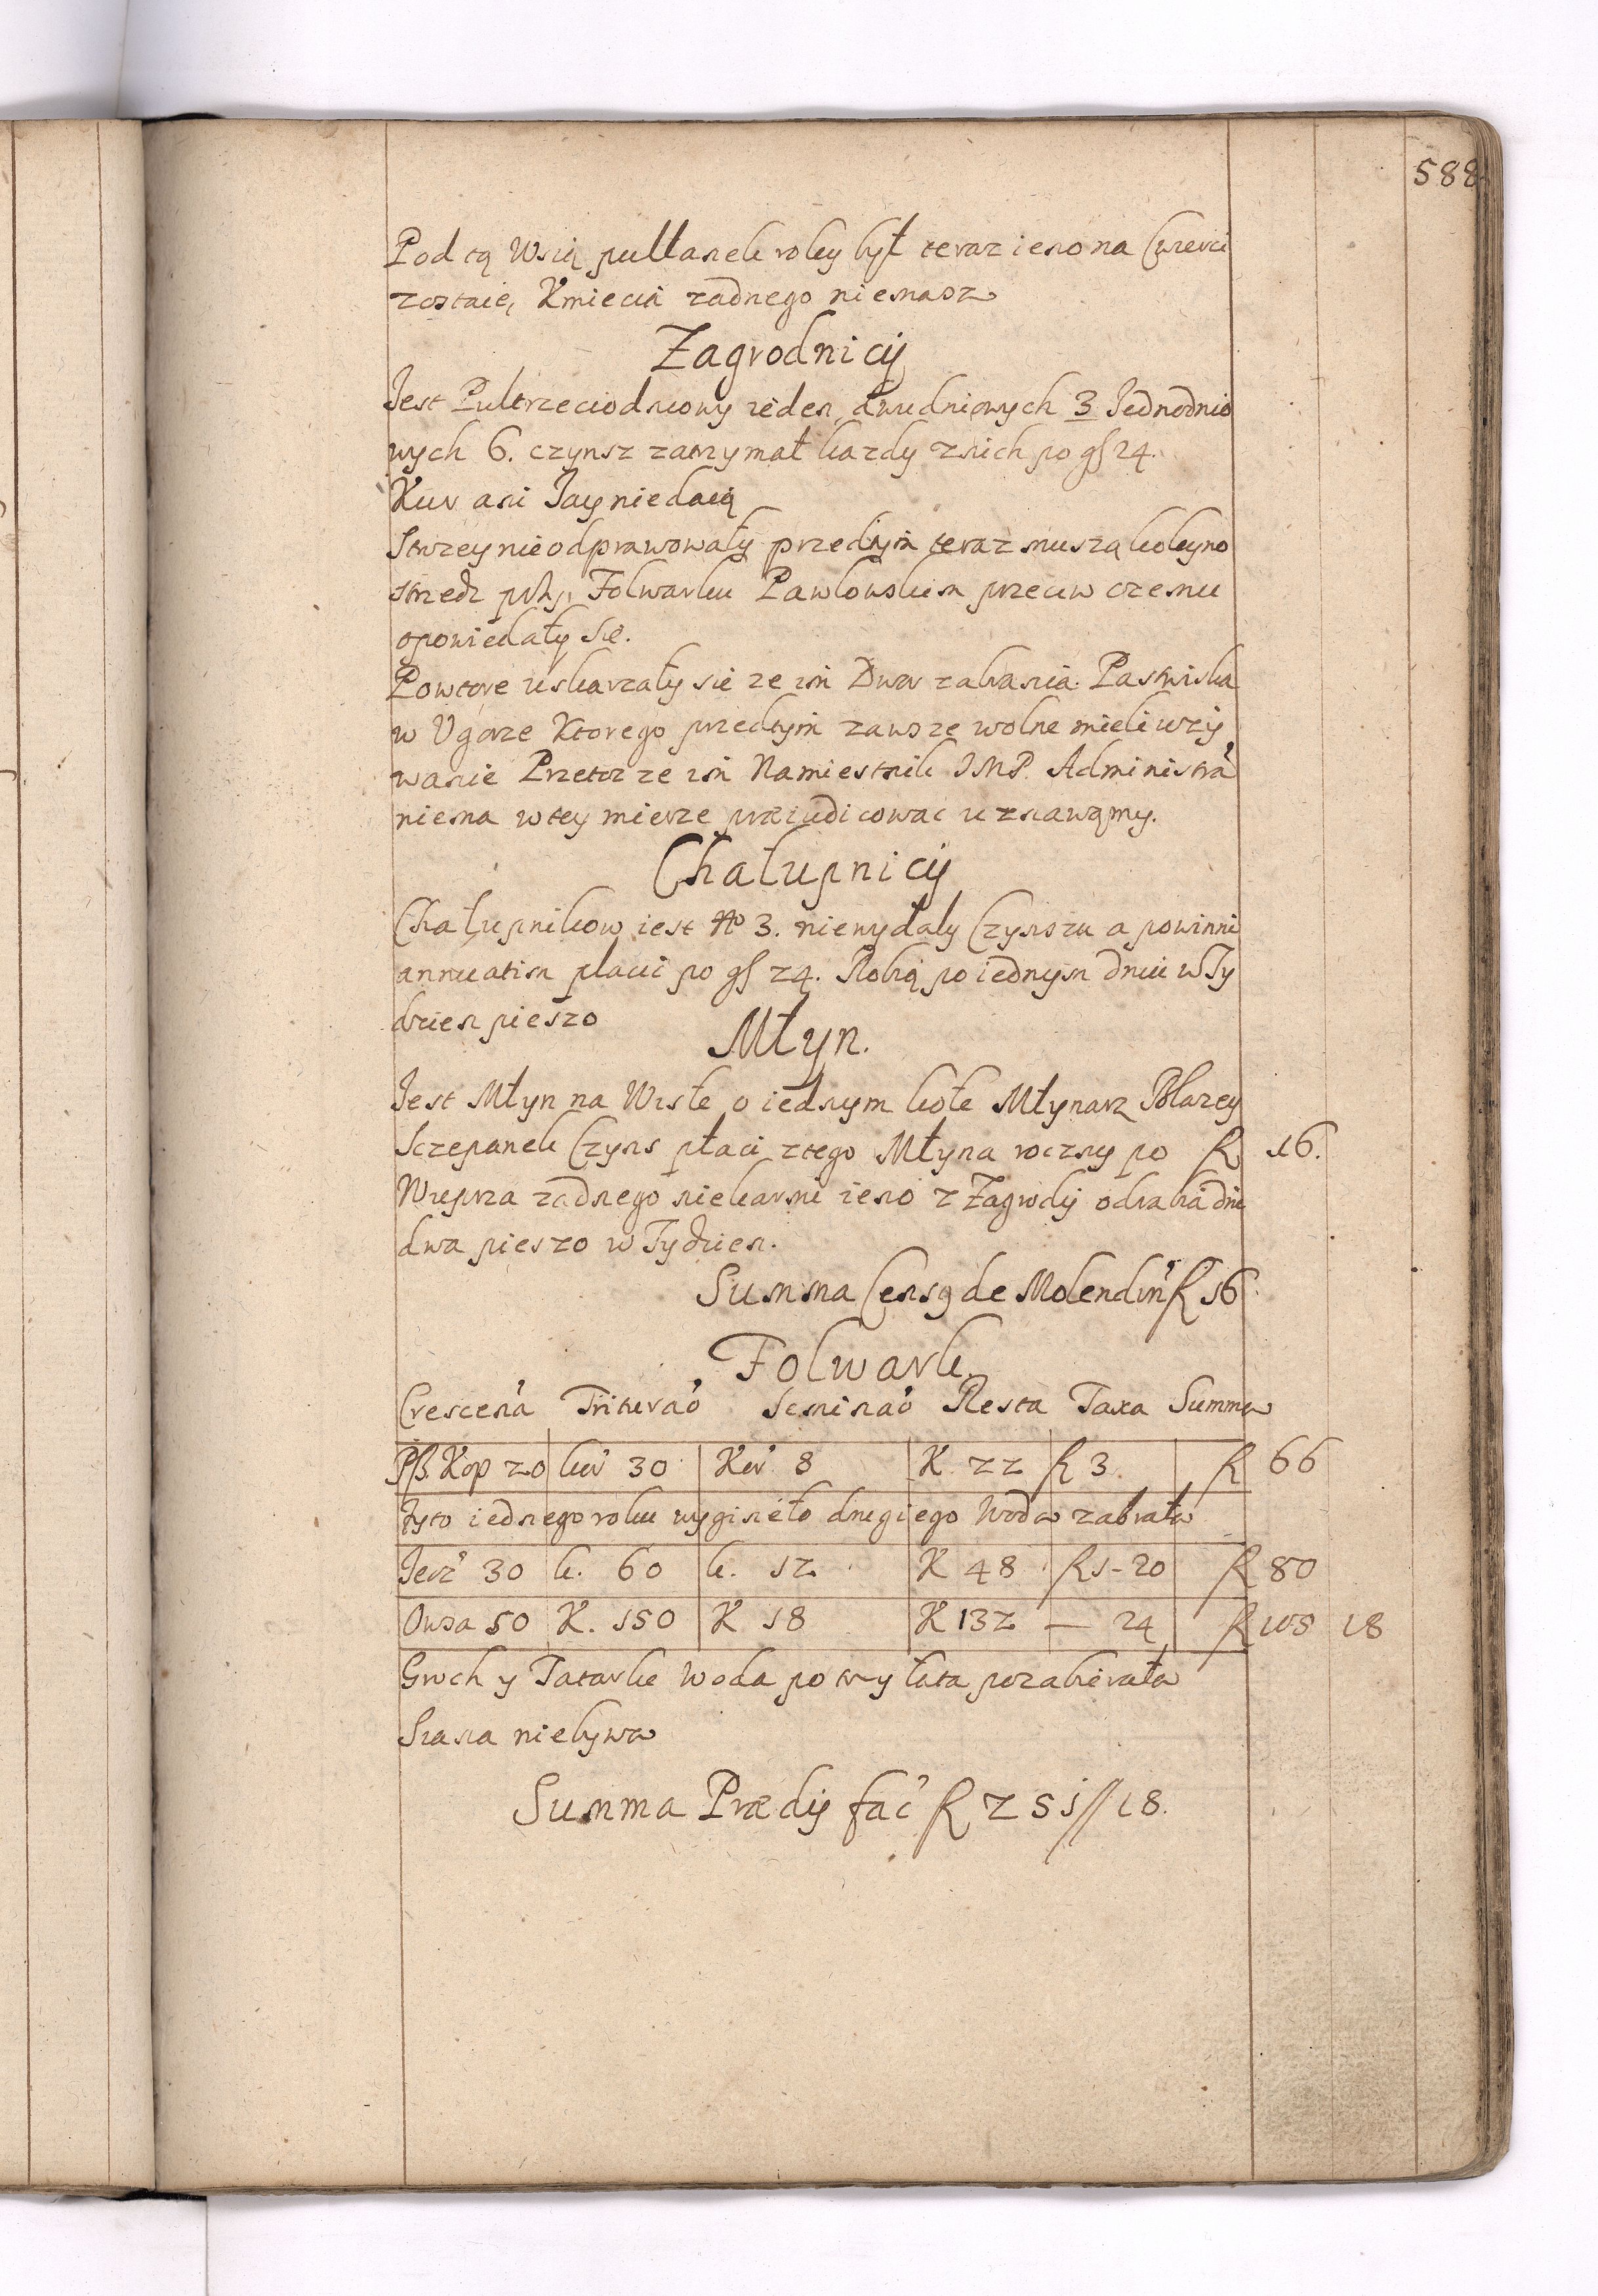 588
Pod tą Wsią pułłanek roley był teraz ieno na Czwerci
zostaie, Kmiecia zadnego niemasz
Zagrodnicÿ
Jest Pułtrzeciodniowy ieden dwudniowych 3 Jednodnio
wych 6. czynsz zatrzymał kazdy znich po gſ 24.
Kur ani Jay niedaią
Strzey nieodprawowały przedtym teraz muszą koleyno
strzedz przy Folwarku Pawłowskim przeciw czemu
opowiedały Sie.
Powtore uskarzały sie ze im Dwor zabrania Pastwiska
w Ugorze Ktorego przedtym zawsze wolne mieli uzÿ
wanie Przetoz ze im Namiestnik JMP. Administra
niema wtey mierze præiudicowac uznawamy.
Chałupnicÿ
Chałupnikow iest No 3. niewydały Czynszu a powinni
annuatim płacic po gſ 24. Robią po iednym dniu w Ty
dzien pieszo
Młyn.
Jest Młyn na Wisle o iednym kole Młynarz Błazey
Sczepanek Czyns płaci ztego Młyna roczny po ƒ 16.
Wieprza zadnego niekarmi ieno z Zagrody odrabia dni
dwa pieszo w Tydzien.
Summa Censg de Molendin ƒ 16
Folwark.
Crescena Triturao Seminao Resta Taxa Summa
Pß. Kop 20 kor 30 Kor 8 K 22 ƒ 3. ƒ 66
Zyto iednego roku wyginęło drugiego Woda zabrała
Jecz 30 k. 60 k. 12 K 48 ƒ 1-20 ƒ 80
Owsa 50 K. 150 K 18 K 132 — 24 ƒ 105 18
Groch y Tatarke Woda po trzy lata pozabierała
Siana niebywa
Summa Prædÿ fac ƒ 251//18.